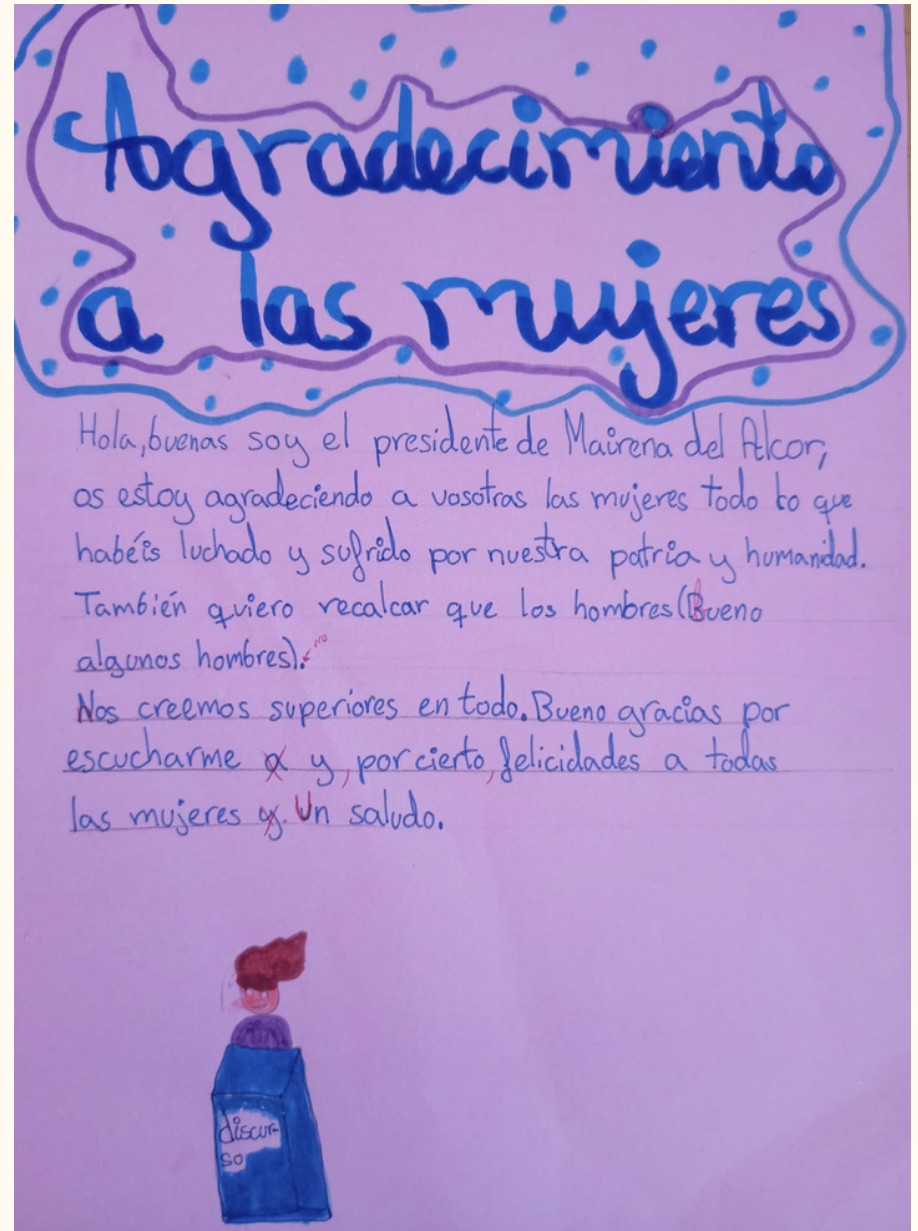 Agradecimiento
a las mujeres
Hola, buenas soy el presidente de Mairena del Alcor,
os estoy agradeciendo a vosotras las mujeres todo lo que
habéis luchado y sufrido por nuestra patria y humanidad.
También quiero recalcar que los hombres (Bueno
algunos hombres). no
Nos creemos superiores en todo. Bueno gracias por
escucharme y, por cierto, felicidades a todas
las mujeres y. Un saludo.
discur-
so